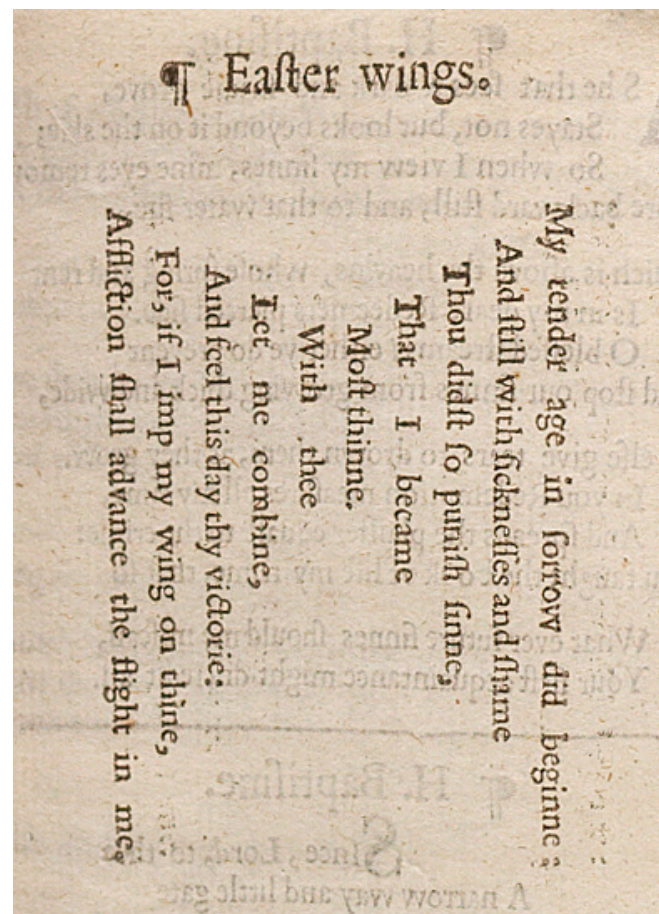 ¶ Eaſter wings.
My tender age in ſorrow did beginne :
And ſtill with ſickneſſes and ſhame
Thou didſt ſo puniſh ſinne,
That I became
Moſt thinne.
With thee
Let me combine,
And feel this day thy victorie:
For, if I imp my wing on thine,
Affliction ſhall advance the flight in me.